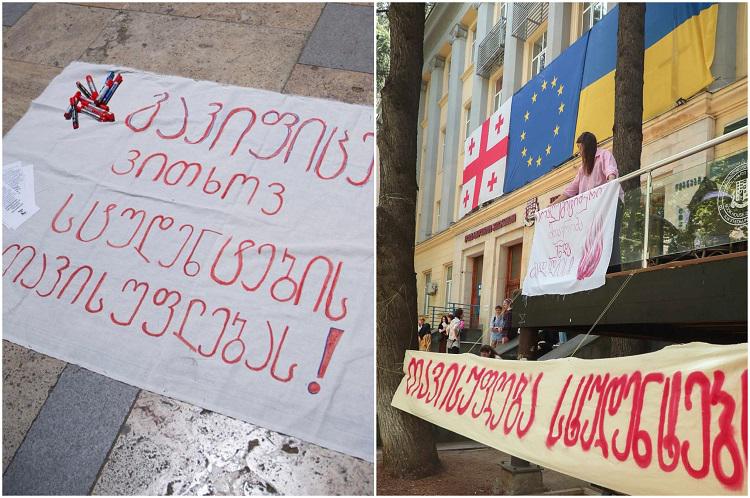 გავიფიცე
ვითხოვ
სტუდენტების
თავისუფლებას!
თავისუფლება სტუდენტებ